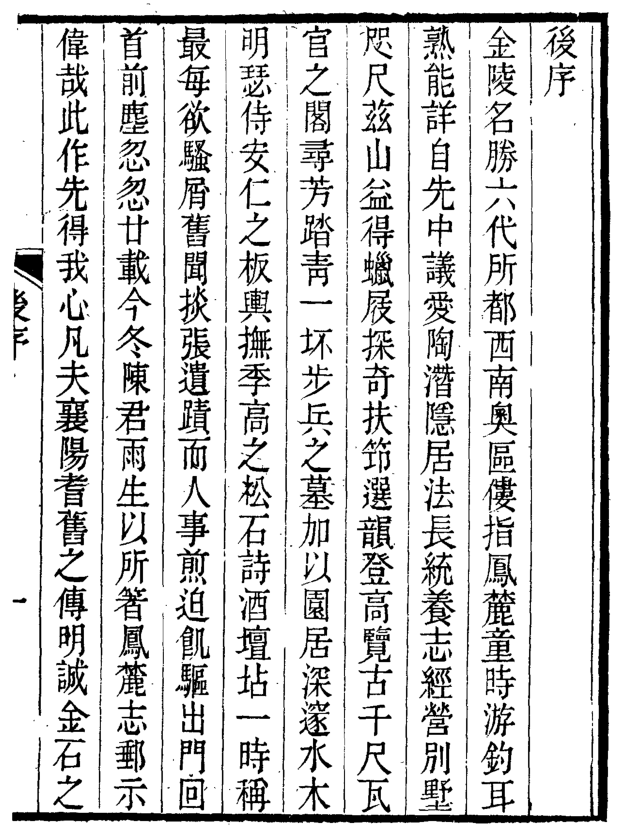 後序
金陵名勝六代所都西南奧區僂指鳳麓童時游釣耳
熟能詳自先中議愛陶潛隱居法長統養志經營別墅
咫尺茲山益得蠟屐探奇扶笻選韻登高覽古千尺瓦
官之閣尋芳踏靑一坏步兵之墓加以園居深邃水木
明瑟侍安仁之板輿撫季高之松石詩酒壇坫一時稱
最每欲騷屑舊聞掞張遺蹟而人事煎迫飢驅出門回
首前塵忽忽廿載今冬陳君雨生以所箸鳳麓志郵示
偉哉此作先得我心凡夫襄陽耆舊之傳明誠金石之
後序
一